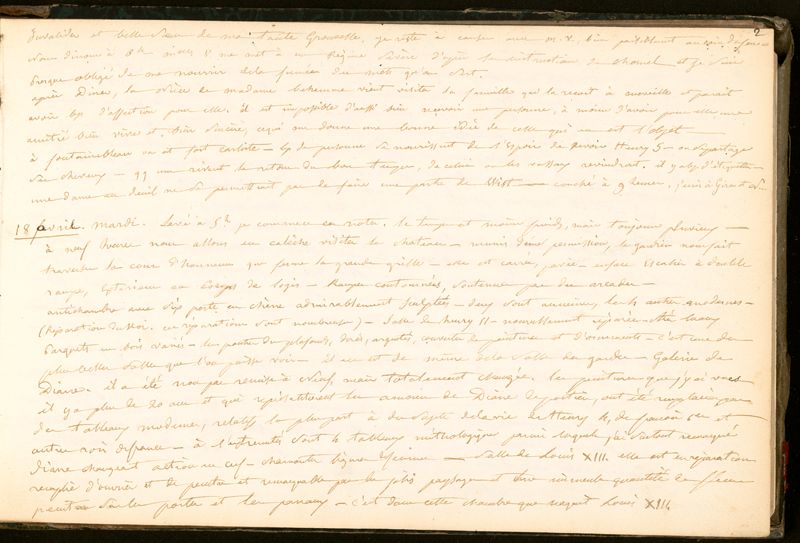 2
Invalides et belle Sœur de ma tante je reste à causer avec m. V. bien paisiblement au coin du feu
nous dinons à 5h. est à un Régime Sévère d'après les instructions de et je suis
presque obligé de me nourrir de la fumée des mets qu'on sert.
après Diner, la nièce de madame vient visiter la famille qui la reçoit à merveille et parait
avoir bp d'affection pour elle. il est impossible d'aussi bien recevoir une personne, à moins d'avoir pour elle une
amitié bien vive et bien Sincère, ce qui me donne une bonne idée de celle qui en est l'objet
à fontainebleau on est fort carliste — bp de personnes se nourrissent de l'espoir de revoir Henry 5 — on s'y partage
ses cheveux — qq uns rêvent le retour du bon temps, de celui où les vassaux reviendront. il y a bp d'étiquette —
une dame en deuil ne se permettrait pas de faire une partie de Wist — couché à 9 heures. j'écris à
18 avril. Mardi. Levé à 5h je commence ces notes. le temps est moins froid, mais toujours pluvieux —
à neuf heures nous allons en calèche visiter le château — munis d'une permission, le gardien nous fait
traverser la cour d'honneur que ferme la grande grille — elle est carrée, pavée — en face Escalier à double
rampe, extérieur au Corps de logis — Rampes contournées, soutenues par des arcades —
antichambre avec six portes en chêne admirablement sculptées — deux sont anciennes, les 4 autres modernes —
(Réparation du Roi. ces réparations sont nombreuses) — Salle de henry II — nouvellement réparée — très beau
parquets en bois variés — les poutres du plafond, dorés, argentés, couverts de peintures et d'ornements — c'est une des
plus belles salles que l'on puisse voir — il en est de même de la Salle des gardes — Galerie de
Diane. il a été non pas remise à neuf, mais totalement changée. les peintures que j'y ai vues
il y a plus de 20 ans et qui représentaient les amours de Diane de poitiers, ont été remplacées par
des tableaux modernes, relatifs la plupart à des sujets de la vie de Henry 4, de françois 1er et
autres rois de france — à l'extrémité sont 4 tableaux mithologiques parmi lesquels j'ai surtout remarqué
Diane changeant actéon en cerf — charmante figure — Salle de Louis XIII. elle est en réparation
remplie d'ouvriers et de peintres et remarquable par les jolis paysages et une quantité de fleurs
peintes sur les portes et les panneaux — c'est dans cette chambre que naquit Louis XIII.